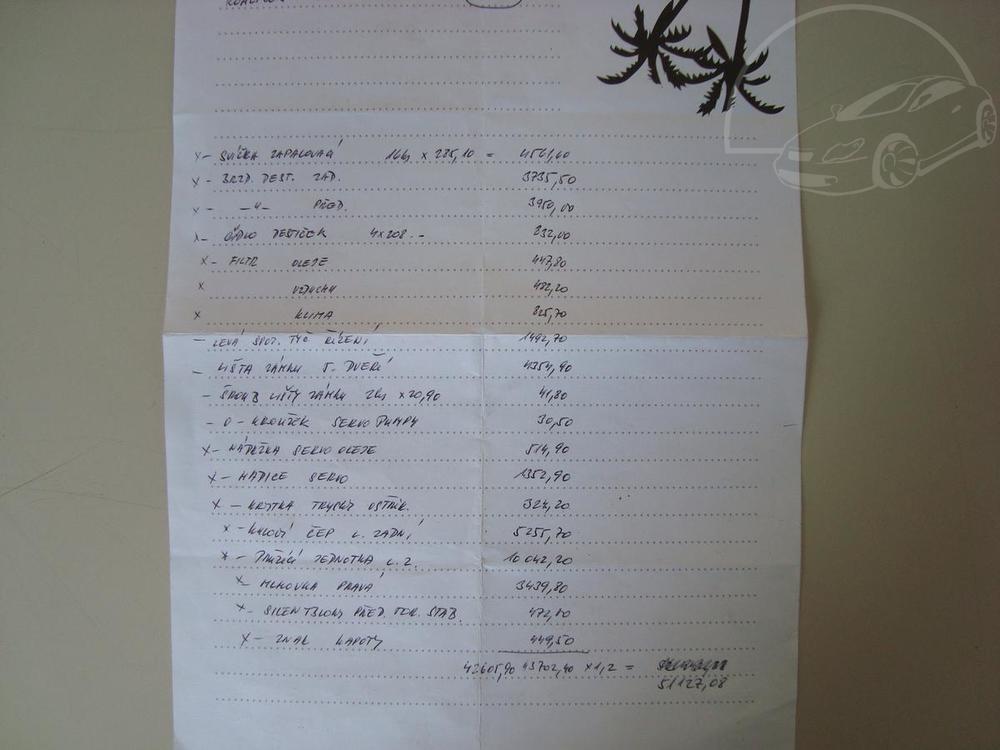 x - SVÍČKA ZAPALOVACÍ 16ks x 285,10 = 4561,60
x - BRZD. DEST. ZAD. 3735,50
x - -"- PŘED. 3950,00
x - ČIDLO DESTIČEK 4x208.- 832,00
x - FILTR OLEJE 447,80
x VZDUCHU 482,20
x KLIMA 825,70
- LEVÁ SPOJ. TYČ ŘÍZENÍ 1492,70
- LIŠTA ZÁMKU 5. DVEŘÍ 4354,90
- ŠROUB LIŠTY ZÁMKU 2ks x 20,90 41,80
- O - KROUŽEK SERVO PUMPY 30,50
x - NÁDRŽKA SERVO OLEJE 514,90
x - HADICE SERVO 1352,90
x - KRYTKA TRYSKY OSTŘIK. 324,20
x - KULOVÝ ČEP L. ZADNÍ 5255,70
x - PRUŽÍCÍ JEDNOTKA L. Z. 10 042,20
x - MLHOVKA PRAVÁ 3439,80
x - SILENTBLOKY PŘED. TOR. STAB. 472,00
x - ZNAK KAPOTY 449,50
42605,90 43702,40 x 1,2 =
51127,08